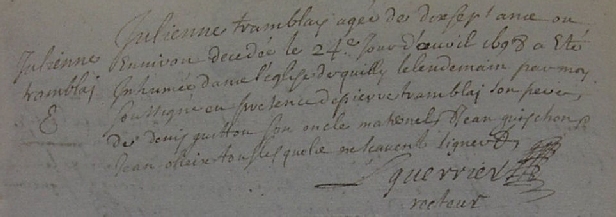 Julienne
tramblaj
Julienne tramblaj agée de dixsept ans ou
Environ decedée le 24e Jour d'avvil 1698 a Eté
Inhumée dans l'Eglise de quilly le lendemain par moy
soussigné en presence de pierre tramblaj son pere
de denis guitton son oncle maternel Jean
Jean tous lesquels ne scavent signer
guerrier
recteur